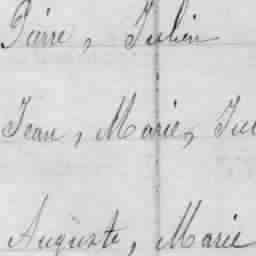 Pierre, Julien
Jean, Marie,
Auguste, Marie